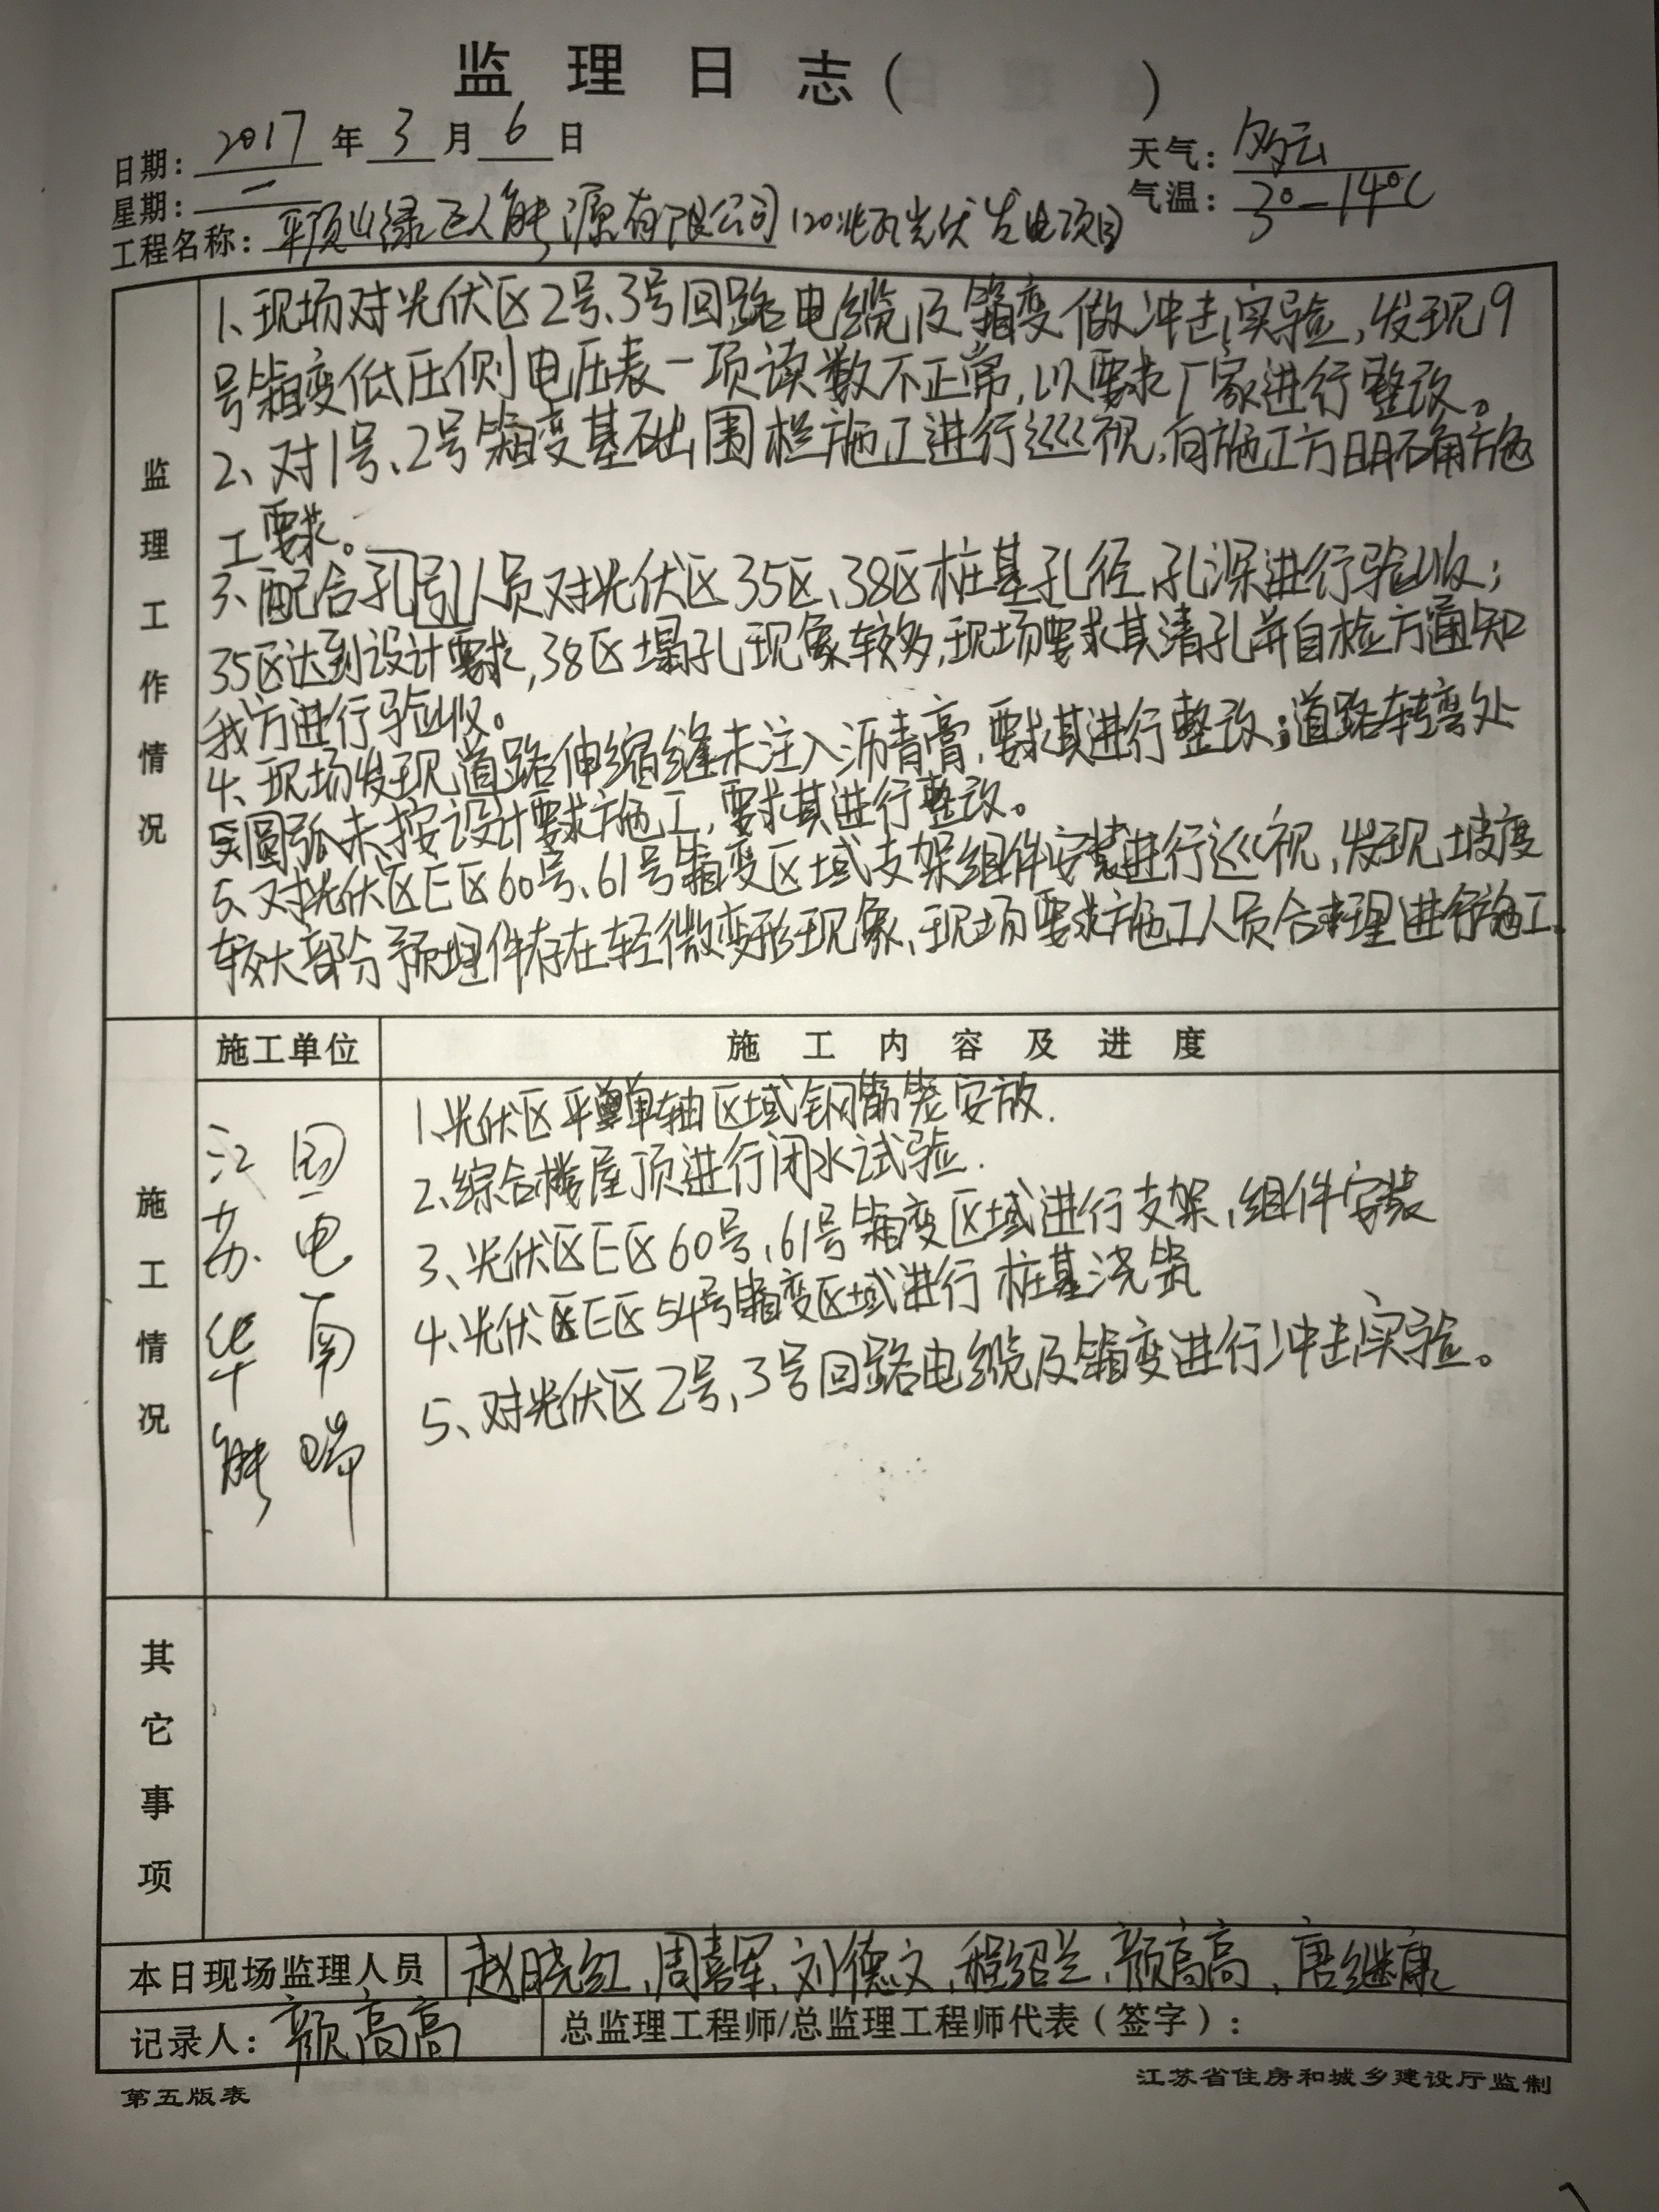 监理日志( )
日期：2017年3月6日
天气：多云
星期：一
气温：3°-14°C
工程名称：平顶山绿巨人能源有限公司120兆瓦光伏发电项目
监理工作情况
1、现场对光伏区2号、3号回路电缆及箱变做冲击实验，发现9
号箱变低压侧电压表一项读数不正常，以要求厂家进行整改。
2、对1号、2号箱变基础围栏施工进行巡视，向施工方明确施
工要求。
3、配合孔引人员对光伏区35区、38区桩基孔径、孔深进行验收；
35区达到设计要求，38区塌孔现象较多，现场要求其清孔并自检方通知
我方进行验收。
4、现场发现道路伸缩缝未注入沥青膏，要求其进行整改；道路转弯处
圆弧未按设计要求施工，要求其进行整改。
5、对光伏区E区60号、61号箱变区域支架组件安装进行巡视，发现坡度
较大部分预埋件存在轻微变形现象、现场要求施工人员合理进行施工。
施工情况
施工单位
施工内容及进度
江苏华能
国电南瑞
1、光伏区平单轴区域钢筋笼安放.
2、综合楼屋顶进行闭水试验.
3、光伏区E区60号、61号箱变区域进行支架、组件安装
4、光伏区E区54号箱变区域进行桩基浇筑
5、对光伏区2号、3号回路电缆及箱变进行冲击实验。
其它事项
本日现场监理人员 赵晓红、周喜军、刘德文、程绍兰、颜高高、唐继康
记录人：颜高高
总监理工程师/总监理工程师代表(签字)：
第五版表
江苏省住房和城乡建设厅监制